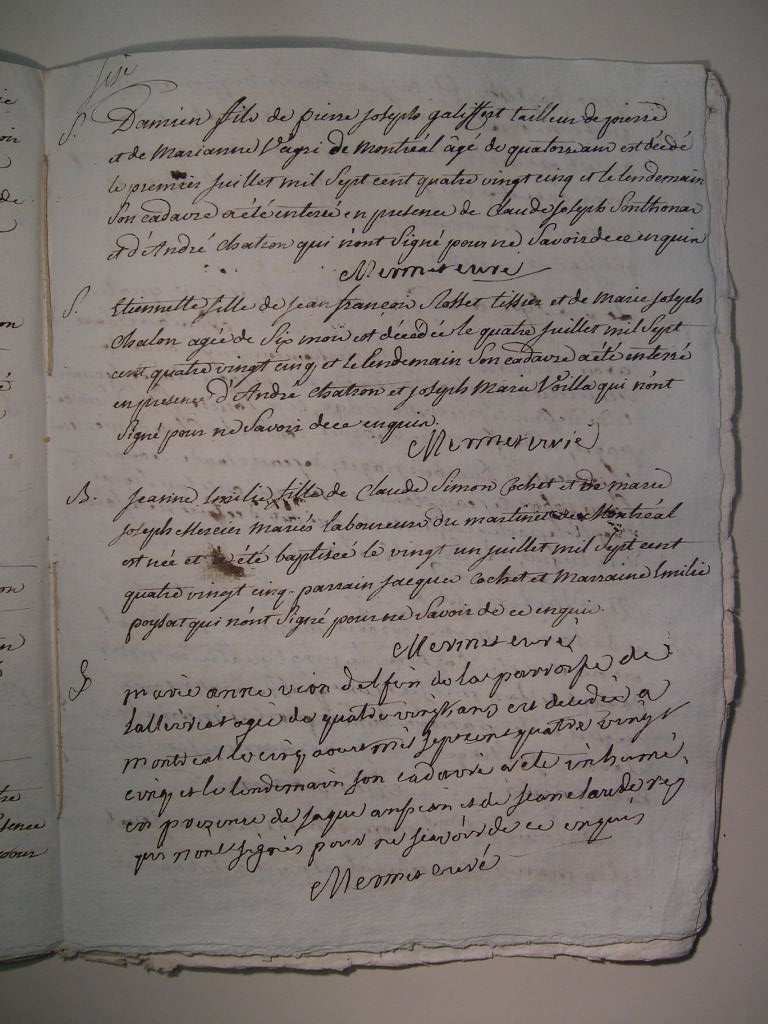 Six
S. Damien fils de pierre Joseph galiffert tailleur de pierre
et de Marianne Vagri de Montréal âgé de quatorze ans est décédé
le premier juillet mil Sept cent quatre vingt cinq et le lendemain
Son cadavre a été enterré en presence de Claude Joseph Sonthonax
et d'André Chatron qui n'ont Signé pour ne Savoir de ce enquis
Mermet curé
S. Etiennette fille de Jean françois Rosset tissier et de Marie Joseph
Chalon agée de Six mois est décédée le quatre juillet mil Sept
cent quatre vingt cinq et le lendemain Son cadavre a été enterré
en presence d'André Chatron et Joseph Marie Voilla qui n'ont
Signé pour ne Savoir de ce enquis.
Mermet curé
B. Jeanne Emilie fille de Claude Simon Cochet et de marie
Joseph Mercier mariés laboureurs du martinet de Montréal
est née et a été baptisée le vingt un juillet mil Sept cent
quatre vingt cinq. parrain Jacque Cochet et Marraine Emilie
poysat qui n'ont Signé pour ne Savoir de ce enquis.
Mermet curé
S marie anne vion delfin de la parroisse de
lalleiriat agé de quatre vingt ans est decedée a
montreal le cinq aout mil sept cent quatre vingt
cinq et le lendemain son cadavre a ete inhumé
en prezence de jaque et de jean claude rey
qui n'ont signés pour ne scavoir de ce enquis
Mermet curé